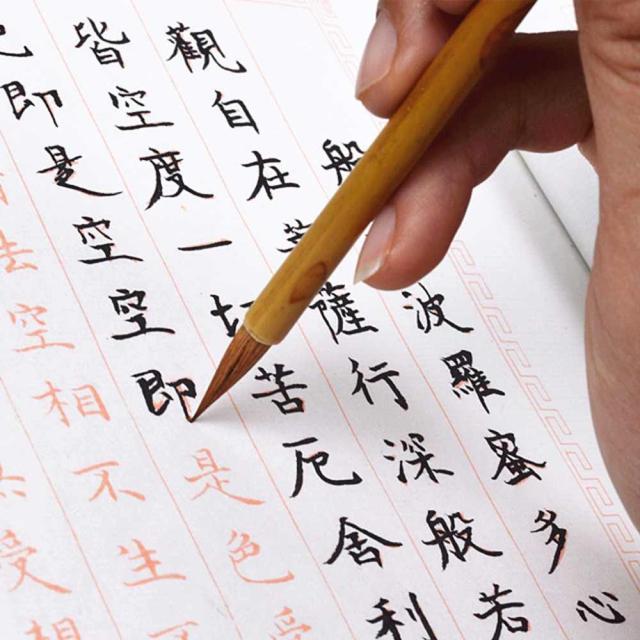 般波羅蜜多心
觀自在菩薩行深般若
皆空度一切苦厄舍利
色即是空空即是色受
法空相不生不
受想